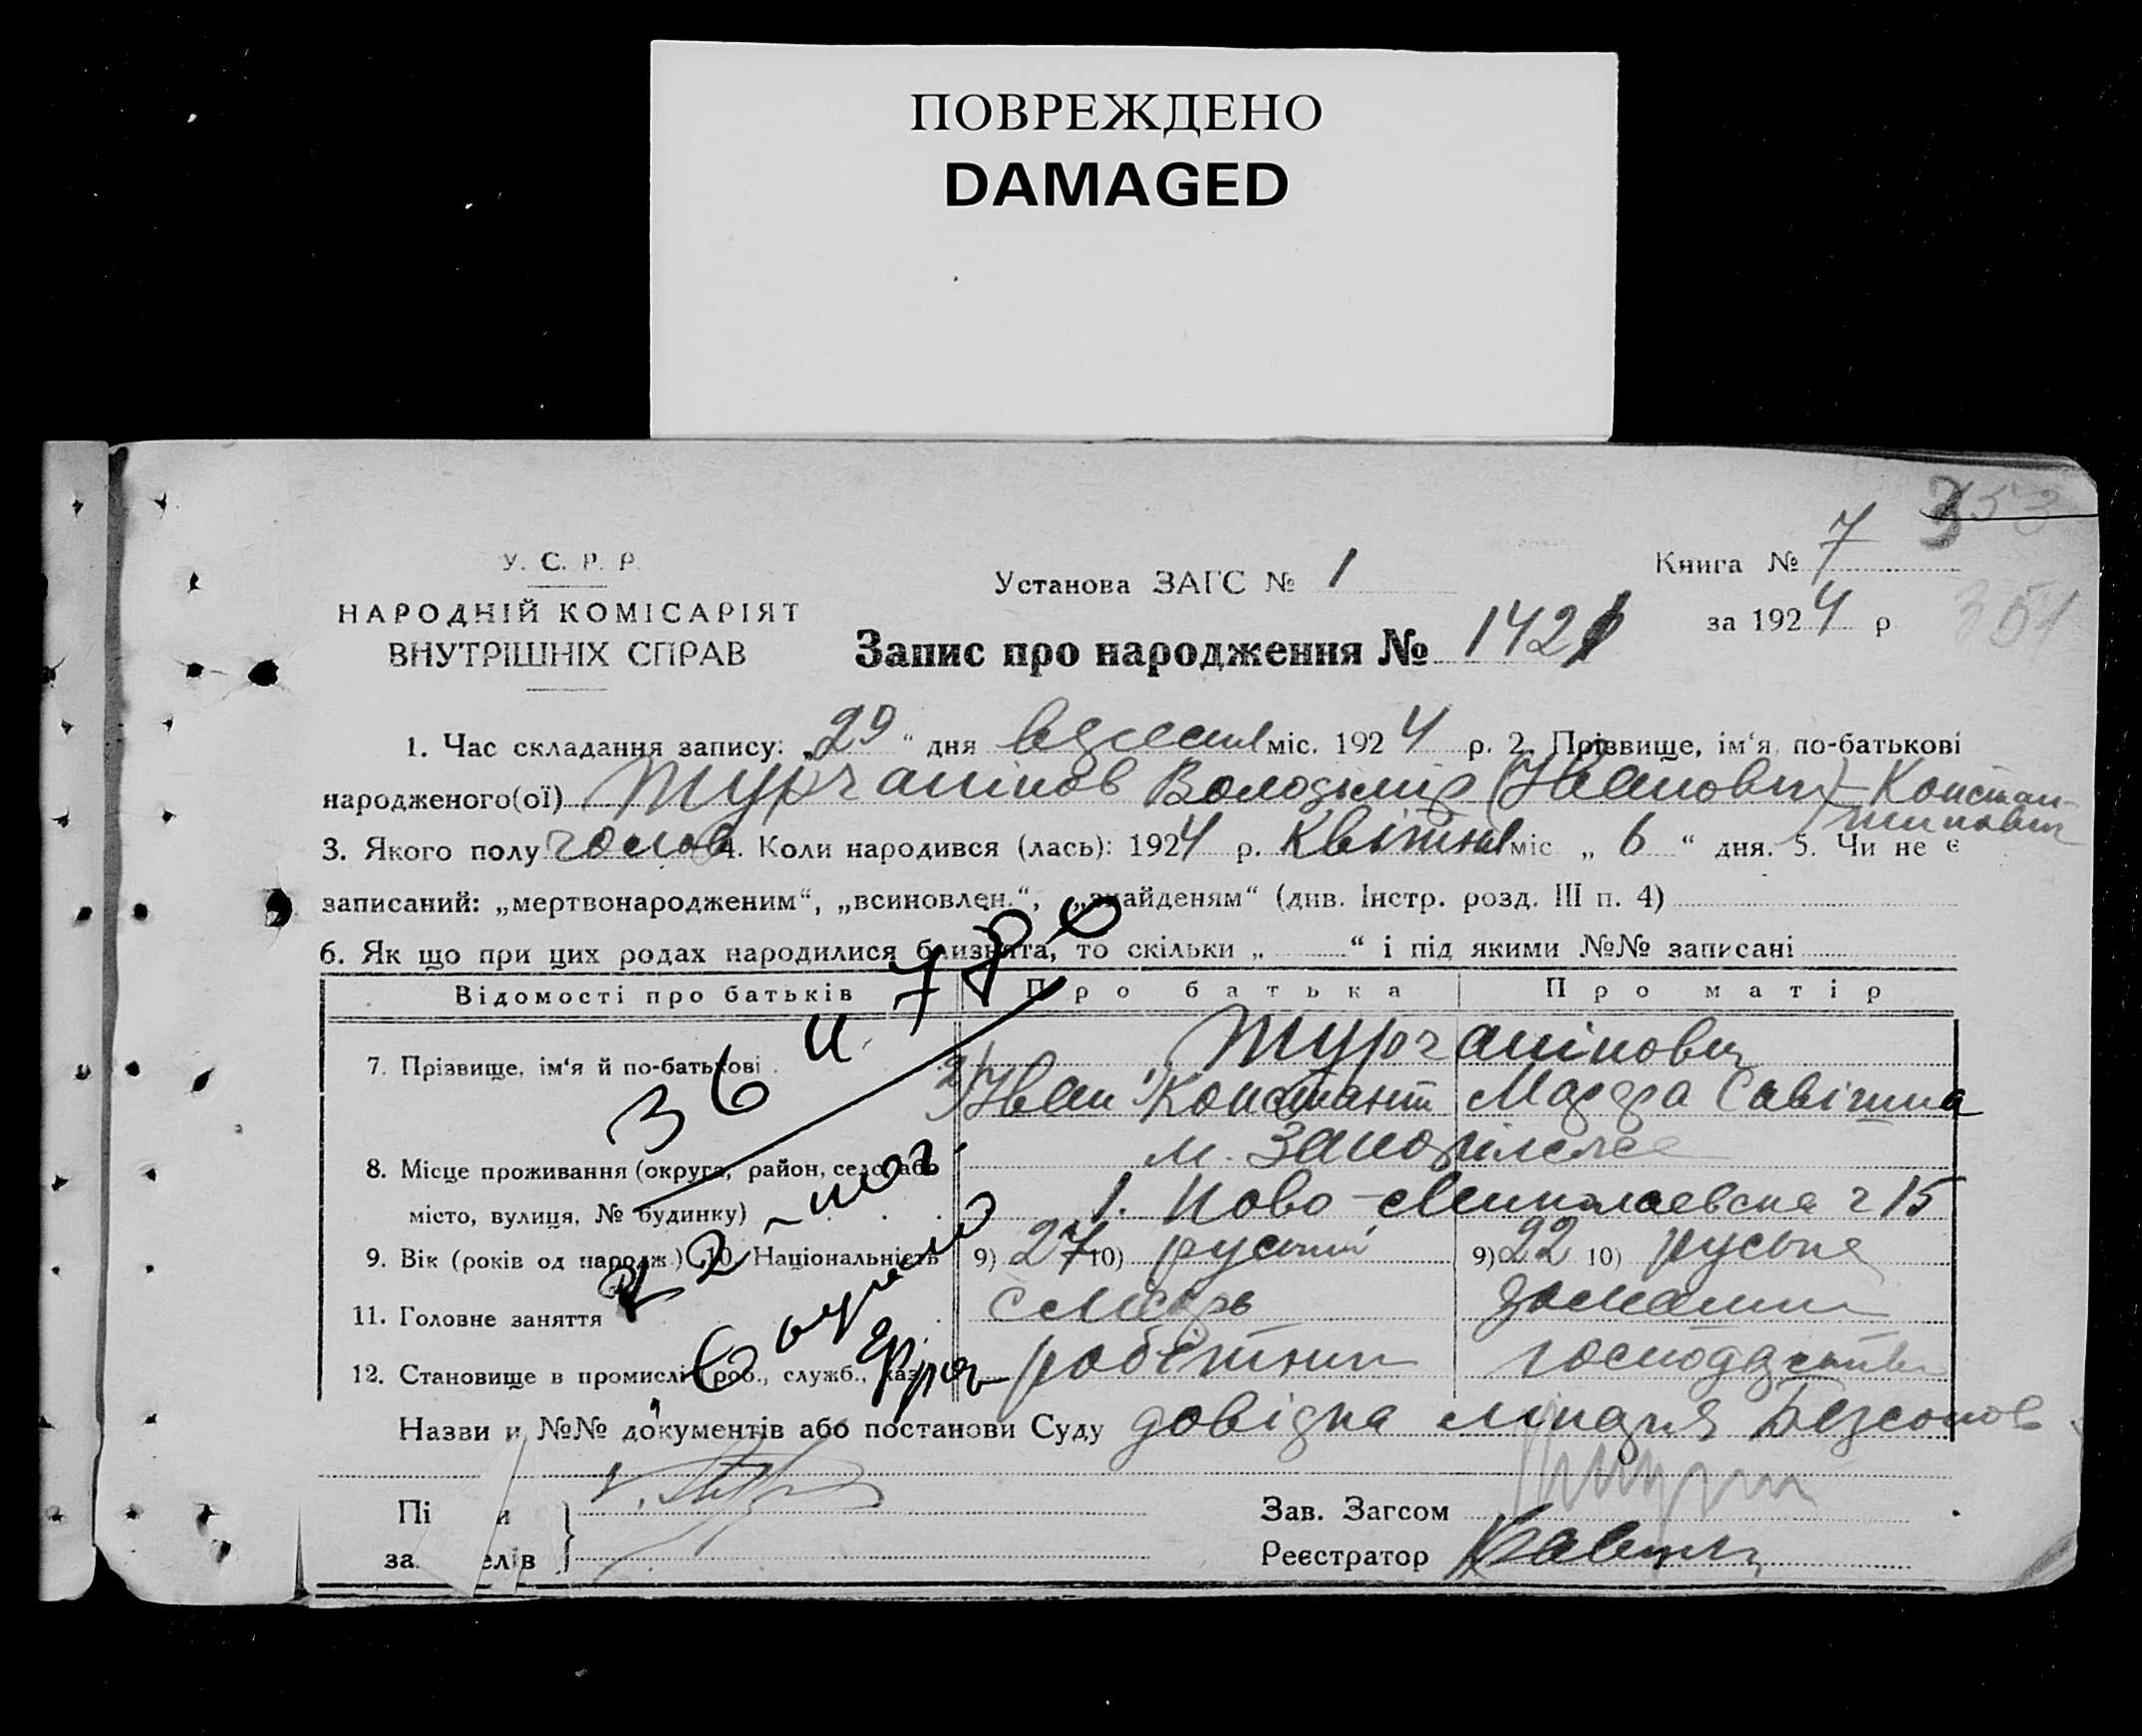 ПОВРЕЖДЕНО
DAMAGED
353
351
У. С. Р. Р.
НАРОДНІЙ КОМІСАРІЯТ
ВНУТРІШНІХ СПРАВ
Установа ЗАГС № 1
Книга № 7
за 1924 р
Запис про народження № 1421
1. Час складання запису: „29“ дня міс. 1924 р. 2. Прізвище, ім‘я, по-батькові
народженого(ої) Турчанінов Володимір (Иванович) Констан-
тинович
3. Якого полу чолов 4. Коли народився (лась): 1924 р. Квітня міс „ 6 “ дня. 5. Чи не є
записаний: „мертвонародженим“, „всиновлен.“, „знайденям“ (див. Інстр. розд. III п. 4)
6. Як що при цих родах народилися близнята, то скільки „ “ і під якими №№ записані
Відомості про батьків Про батька Про матір
7. Прізвище, ім‘я й по-батькові Турчанінови
Иван Констант Марфа Савішна
8. Місце проживання (округа, район, село або м. Запоріжжє
місто, вулиця, № будинку) Ново-Миколаевска 15
9. Вік (років од народж.) 10. Національність 9) 27 10) руський 9) 22 10) руська
11. Головне заняття слюсарь домашнє
12. Становище в промислі (роб., служб., хаз.) робітник господарство
36 и 780
Назви и №№ документів або постанови Суду довідка лікаря Безсонов
Пі и
за елів
Зав. Загсом
Реєстратор